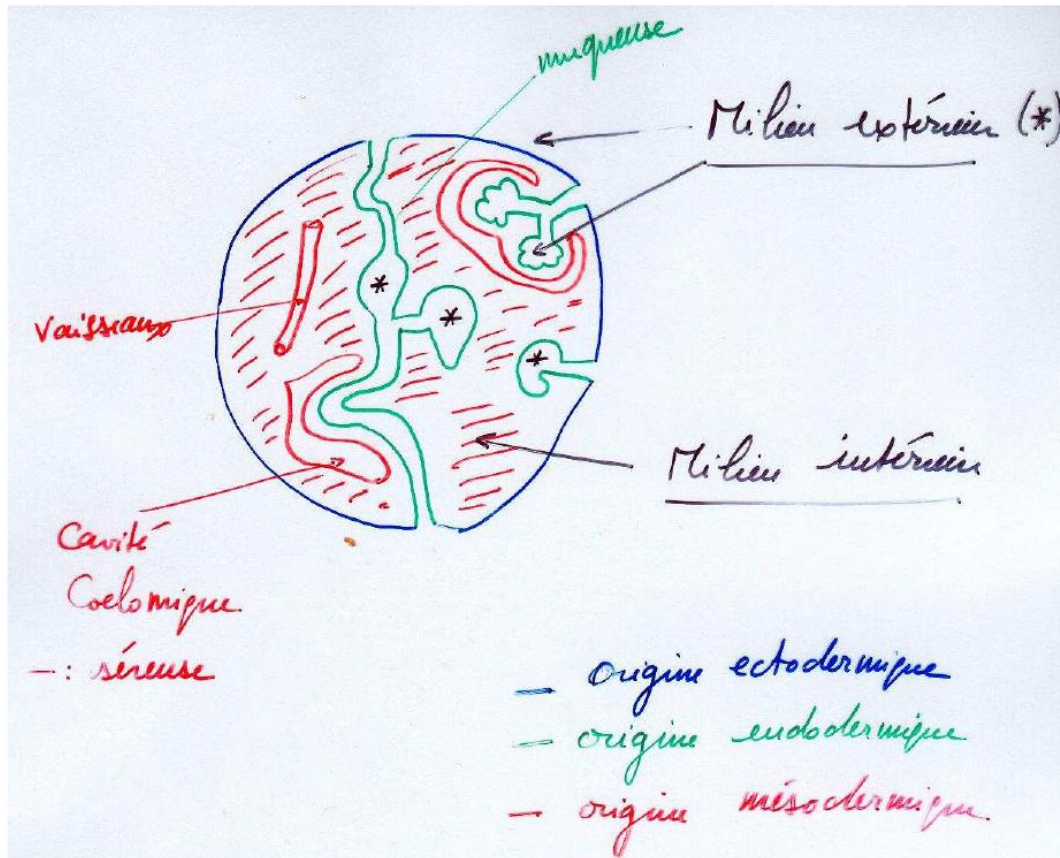 muqueuse
Milieu extérieur (*)
Vaisseaux
Milieu intérieur
Cavité
Coelomique
— : séreuse
— origine ectodermique
— origine endodermique
— origine mésodermique